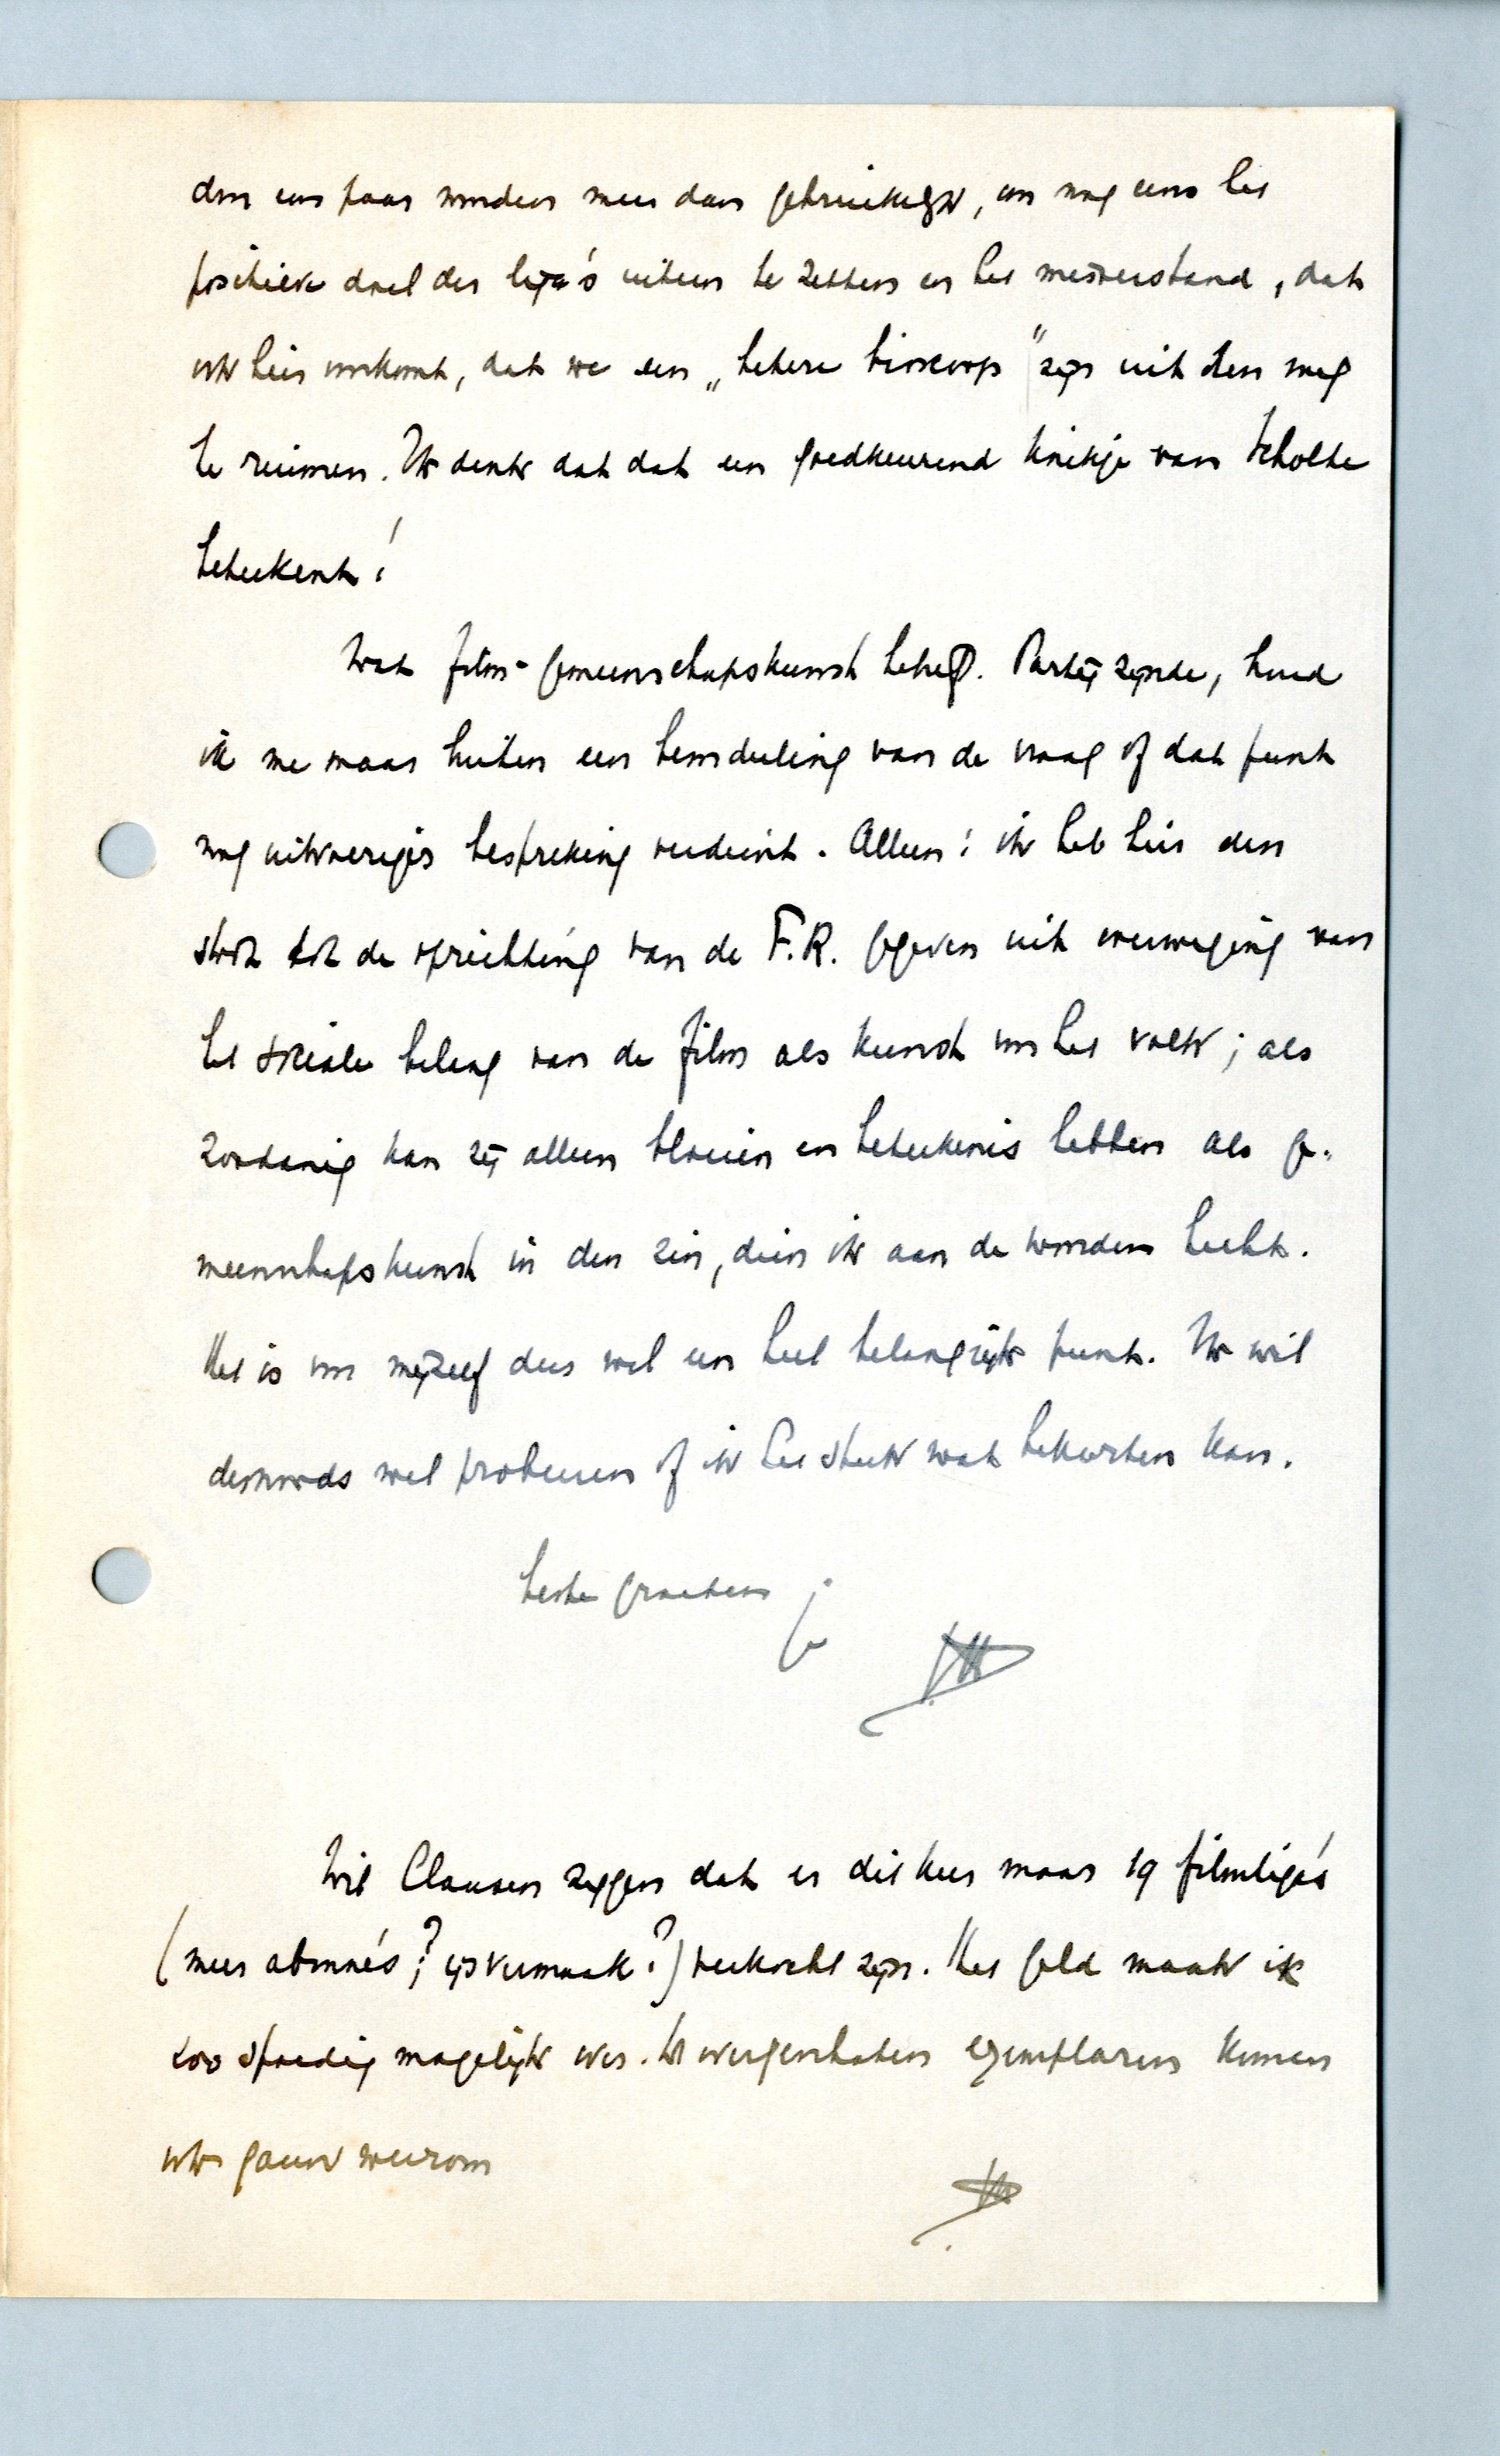 door een paar woorden meer dan gebruikelijk, om nog eens het
positieve doel der liga's uiteen te zetten en het misverstand, dat
ook hier voorkomt, dat we een „betere bioscoop" zijn uit den weg
te ruimen. Ik denk dat dat een goedkeurend knikje van Scholte
beteekent!
Wat film-gemeenschapskunst betreft. Partij zijnde, houd
ik me maar buiten een beoordeeling van de vraag of dat punt
nog uitvoeriger bespreking verdient. Alleen: ik heb hier den
stoot tot de oprichting van de F.R. gegeven uit overweging van
het sociale belang van de film als kunst voor het volk; als
zoodanig kan zij alleen bloeien en beteekenis hebben als ge-
meenschapskunst in den zin, dien ik aan de woorden hecht.
Het is voor mijzelf dus wel een heel belangrijk punt. Ik wil
desnoods wel probeeren of ik het stuk wat bekorten kan.
beste groeten
je
Wil Clausen zeggen dat er dit keer maar 19 filmliga's
(meer abonné's? ijsvermaak?) verkocht zijn. Het geld maak ik
zoo spoedig mogelijk over. De overgeschoten exemplaren komen
ook gauw weerom